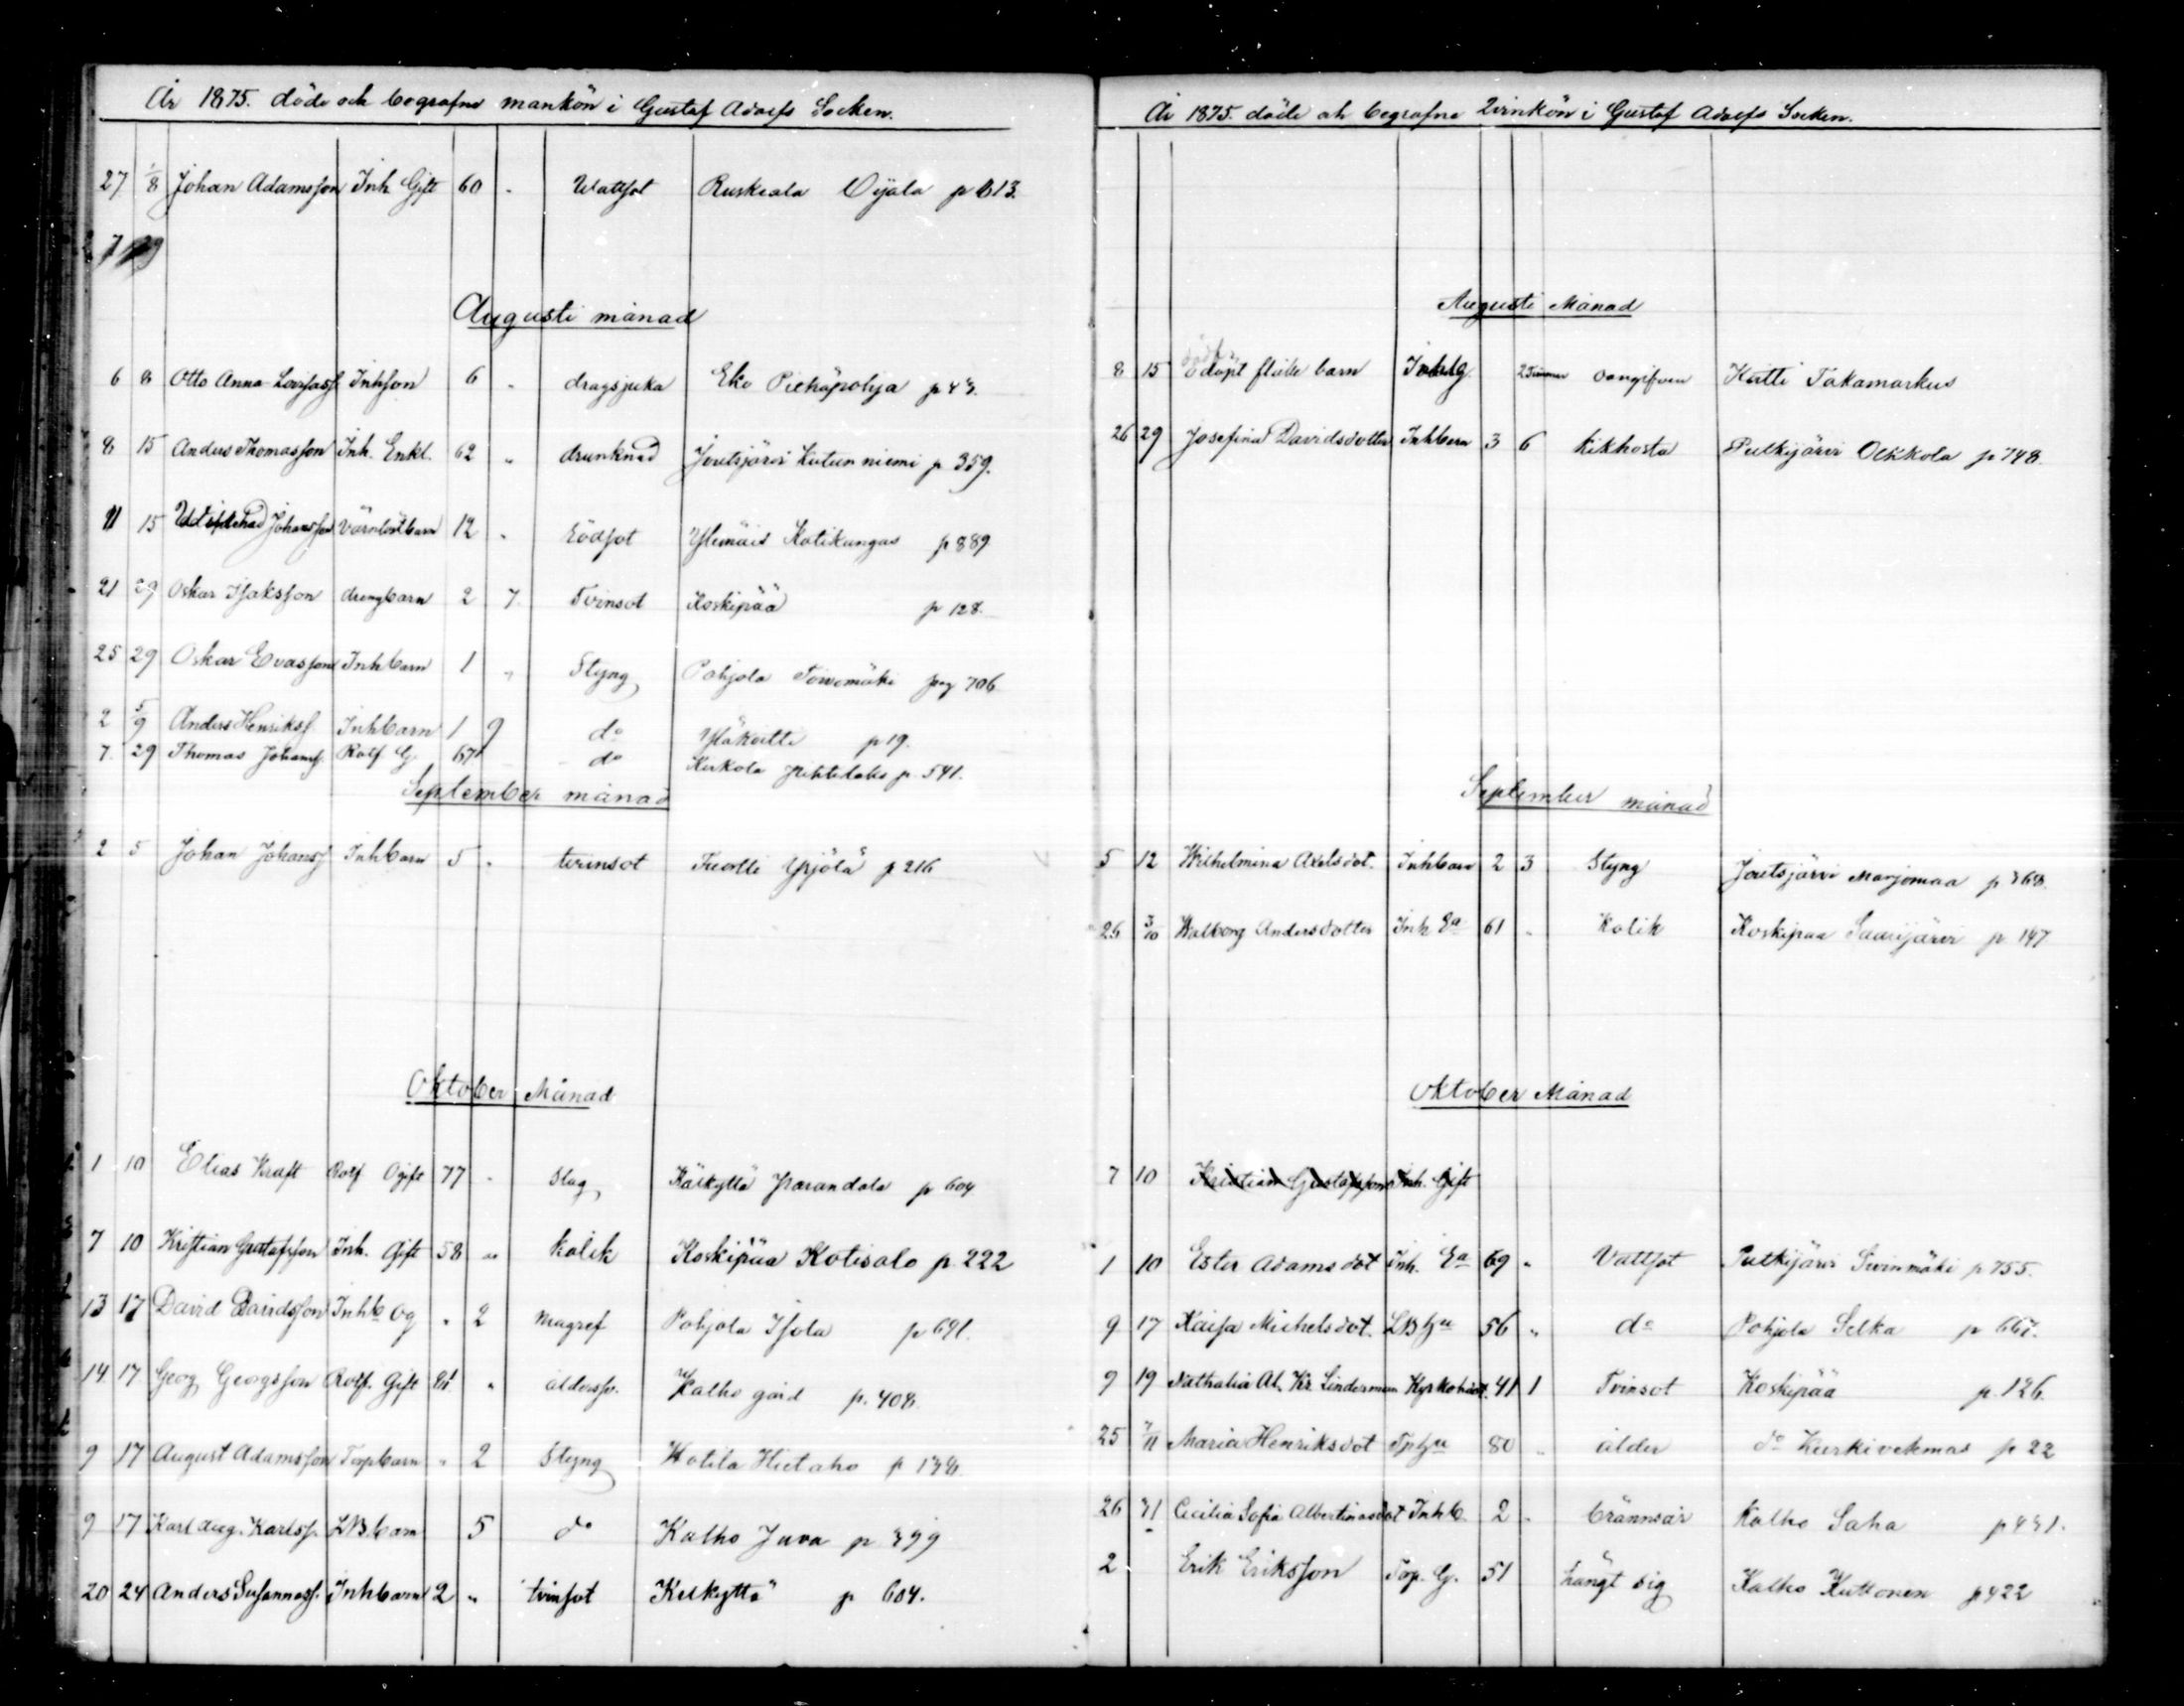 År 1875. döde och begrafne mankön i Gustaf Adolfs Socken.
27 1/8 Johan Adamsson Inh Gift 60 " Wattsot Ruskeala Ojala p 613.
Augusti månad
6 8 Otto Anna Lovisas. Inhson 6 " dragsjuka Eko Pichäpohja p 43.
8 15 Anders Thomasson Inh. Enkl. 62 " drunknad Joutsjärvi Kutunniemi p 359.
11 15 Johansson Värnlöst barn 12 " Rödsot Ylemäis Kotikangas p 889
21 29 Oskar Isaksson drengbarn 2 7. Tvinsot Koskipää p 128.
25 29 Oskar Evasson Inhbarn 1 " Styng Pohjola Toivomäki pag 706
2 5/9 Anders Henrikss. Inhbarn 1 9 do Yläkoitti p 19.
7. 29 Thomas Johanss. Rotf G. 67 do Kurkola p. 541.
September månad
2 5 Johan Johanss Inhbarn 5 " tvinsot Yrjölä p 216
Oktober Månad
1 10 Elias Kraft Rotf Ogift 77 " slag Käkyttä Parandala p 604
7 10 Kristian Gustafsson Inh. Gift 58 " kolik Koskipää Kotisalo p. 222
13 17 David Davidsson Inhb og " 2 magref Pohjola Isola p 691.
14 17 Georg Georgsson Rotf. Gift 81 " åldersv. Kalho gård p. 408.
9 17 August Adamsson Torpbarn " 2 Styng Wotila Hietaho p 138
9 17 Karl Aug. Karlss. LB.barn 5 do Kalho Juva p 399
20 24 Anders Susannass. Inhbarn 2 " tvinsot Keskyttä p 604.
År 1875. döde och begrafne Qvinkön i Gustaf Adolfs Socken.
Augusti Månad
8 15 odöpt flicke barn Inh 2 Timmar oangifven Kutti Takamarkus
26 29 Josefina Davidsdotter Inhbarn 3 6 kikhosta Pulkijärvi Olkkola p 748.
September månad
5 12 Wilhelmina Axelsdot. Inhbarn 2 3 Styng Joutsjärvi Marjomaa p 368.
26 3/10 Walborg Andersdotter Inh Ea 61 " Kolik Koskipää Saarijärvi p 147
Oktober Månad
7 10 Kristian Gustafsson Inh. Gift
1 10 Ester Adamsdot Inh. Ea 69 " Vattsot Pulkijärvi Sivinmäki p 755.
9 17 Kaisa Michelsdot. LB hu 56 " do Pohjola Selka p 667.
9 19 Nathalia Al. Kr. Linderman Kyrkoh 41 1 Tvinsot Koskipää p. 126.
25 7/11 Maria Henriksdot Tphu 80 " ålder do Kurkivekmas p 22
26 7/11 Cecilia Sofia Albertinasdot Inhb 2 " brännsår Kalho Saha p 431.
2 Erik Eriksson Torp. G. 51 hängt sig Kalho Kuttonen p 422